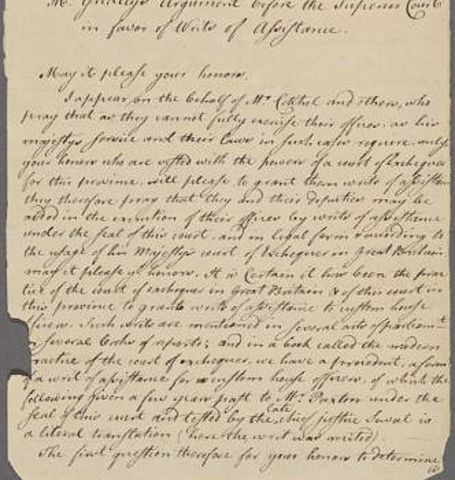 Mr. Gridleys Argument before the Supreme Court
in favor of Writs of Assistance.
May it please your honors,
I appear on the behalf of Mr. Cockle and others, who
pray that as they cannot fully exercise their offices, as his
majestys service and their laws in such cases require, unless
your honors who are vested with the power of a court of exchequer
for this province, will please to grant them writs of assistance
they therefore pray that they and their deputies may be
aided in the execution of their offices by writs of assistance
under the seal of this court, and in legal form & according to
the usage of his Majestys court of Exchequer in Great Britain
may it please yr. honors. It is Certain it has been the prac
tice of the court of exchequer in Great Britain & of this court in
this province to grant writs of assistance to custom house
officers. Such writs are mentioned in several acts of parliamt.
in several books of reports; and in a book called the modern
practice of the court of exchequer, we have a precedent, a form
of a writ of assistance for a custom house officer, of which the
following given a few years past to Mr. Paxton under the
seal of this court and tested by the late chief justice Sewal is
a literal translation (here the writ was recited)
The first question therefore for your honors to determine
is